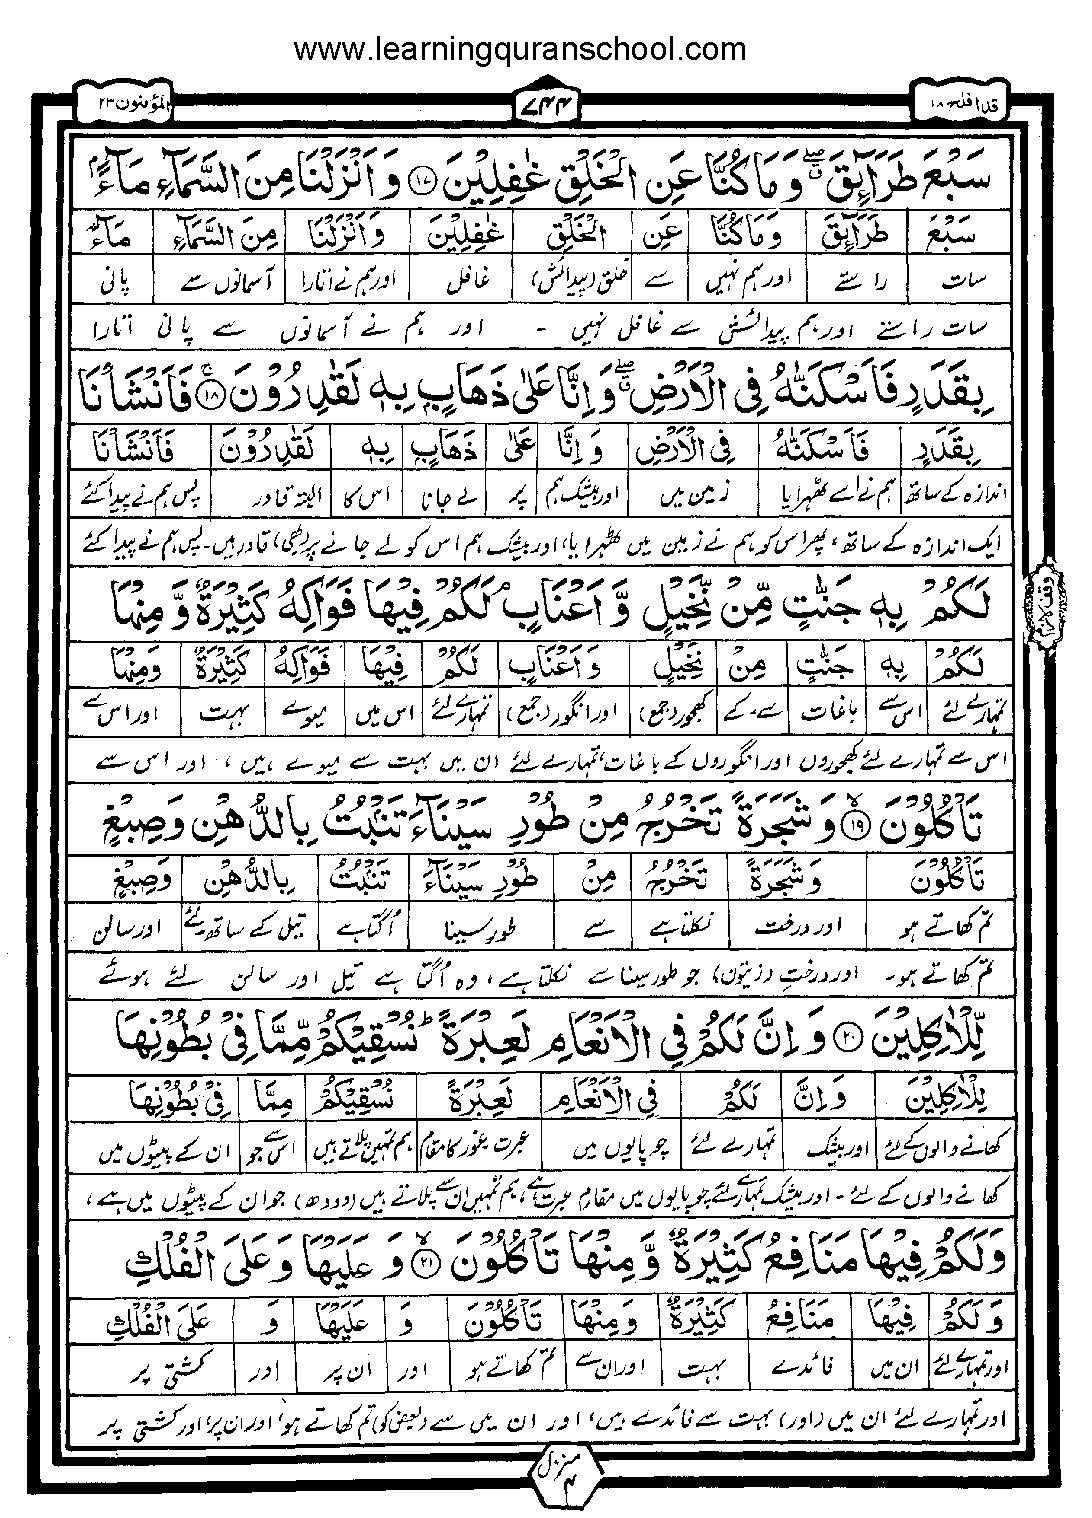 www.learningquranschool.com
قد افلح ۱۸
۷۴۴
المؤمنون ۲۳
سَبْعَ طَرَآئِقَ ۖ وَمَا كُنَّا عَنِ الْخَلْقِ غٰفِلِيْنَ ۝۱۷ وَاَنْزَلْنَا مِنَ السَّمَآءِ مَآءًۢ
سَبْعَ طَرَآئِقَ وَمَا كُنَّا عَنِ الْخَلْقِ غٰفِلِيْنَ وَاَنْزَلْنَا مِنَ السَّمَآءِ مَآءً
سات راستے اور ہم نہیں سے خلق (پیدائش) غافل اور ہم نے اتارا آسمانوں سے پانی
سات راستے اور ہم پیدائش سے غافل نہیں - اور ہم نے آسمانوں سے پانی اتارا
بِقَدَرٍ فَاَسْكَنّٰهُ فِى الْاَرْضِ ۖ وَاِنَّا عَلٰى ذَهَابٍۭ بِهٖ لَقٰدِرُوْنَ ۝۱۸ فَاَنْشَاْنَا
بِقَدَرٍ فَاَسْكَنّٰهُ فِى الْاَرْضِ وَاِنَّا عَلٰى ذَهَابٍۭ بِهٖ لَقٰدِرُوْنَ فَاَنْشَاْنَا
اندازہ کے ساتھ ہم نے اسے ٹھہرایا زمین میں اور بیشک ہم پر لے جانا اس کا البتہ قادر پس ہم نے پیدا کئے
ایک اندازہ کے ساتھ، پھر اس کو ہم نے زمین میں ٹھہرایا، اور بیشک ہم اس کو لے جانے پر (بھی) قادر ہیں۔ پس ہم نے پیدا کئے
لَكُمْ بِهٖ جَنّٰتٍ مِّنْ نَّخِيْلٍ وَّاَعْنَابٍ ۘ لَكُمْ فِيْهَا فَوَاكِهُ كَثِيْرَةٌ وَّمِنْهَا
لَكُمْ بِهٖ جَنّٰتٍ مِنْ نَّخِيْلٍ وَاَعْنَابٍ لَكُمْ فِيْهَا فَوَاكِهُ كَثِيْرَةٌ وَمِنْهَا
تمہارے لئے اس سے باغات سے۔کے کھجور (جمع) اور انگور (جمع) تمہارے لئے اس میں میوے بہت اور اس سے
اس سے تمہارے لئے کھجوروں اور انگوروں کے باغات، تمہارے لئے ان میں بہت سے میوے ہیں، اور اس سے
تَاْكُلُوْنَ ۝۱۹ وَشَجَرَةً تَخْرُجُ مِنْ طُوْرِ سَيْنَآءَ تَنْۢبُتُ بِالدُّهْنِ وَصِبْغٍ
تَاْكُلُوْنَ وَشَجَرَةً تَخْرُجُ مِنْ طُوْرِ سَيْنَآءَ تَنْۢبُتُ بِالدُّهْنِ وَصِبْغٍ
تم کھاتے ہو اور درخت نکلتا ہے سے طور سینا اُگتا ہے تیل کے ساتھ۔لئے اور سالن
تم کھاتے ہو۔ اور درخت (زیتون) جو طور سینا سے نکلتا ہے، وہ اُگتا ہے تیل اور سالن لئے ہوئے
لِّلْاٰكِلِيْنَ ۝۲۰ وَاِنَّ لَكُمْ فِى الْاَنْعَامِ لَعِبْرَةً ؕ نُسْقِيْكُمْ مِّمَّا فِىْ بُطُوْنِهَا
لِّلْاٰكِلِيْنَ وَاِنَّ لَكُمْ فِى الْاَنْعَامِ لَعِبْرَةً نُسْقِيْكُمْ مِمَّا فِىْ بُطُوْنِهَا
کھانے والوں کے لئے اور بیشک تمہارے لئے چوپایوں میں عبرت۔غور کا مقام ہم تمہیں پلاتے ہیں اس سے جو ان کے پیٹوں میں
کھانے والوں کے لئے - اور بیشک تمہارے لئے چوپایوں میں مقامِ عبرت ہے، ہم تمہیں ان سے پلاتے ہیں (دودھ) جو ان کے پیٹوں میں ہے،
وَلَكُمْ فِيْهَا مَنَافِعُ كَثِيْرَةٌ وَّمِنْهَا تَاْكُلُوْنَ ۝۲۱ وَعَلَيْهَا وَعَلَى الْفُلْكِ
وَلَكُمْ فِيْهَا مَنَافِعُ كَثِيْرَةٌ وَمِنْهَا تَاْكُلُوْنَ وَ عَلَيْهَا وَ عَلَى الْفُلْكِ
اور تمہارے لئے ان میں فائدے بہت اور ان سے تم کھاتے ہو اور ان پر اور کشتی پر
اور تمہارے لئے ان میں (اور) بہت سے فائدے ہیں، اور ان میں سے (بعض کو) تم کھاتے ہو، اور ان پر، اور کشتی پر
منزل ۴